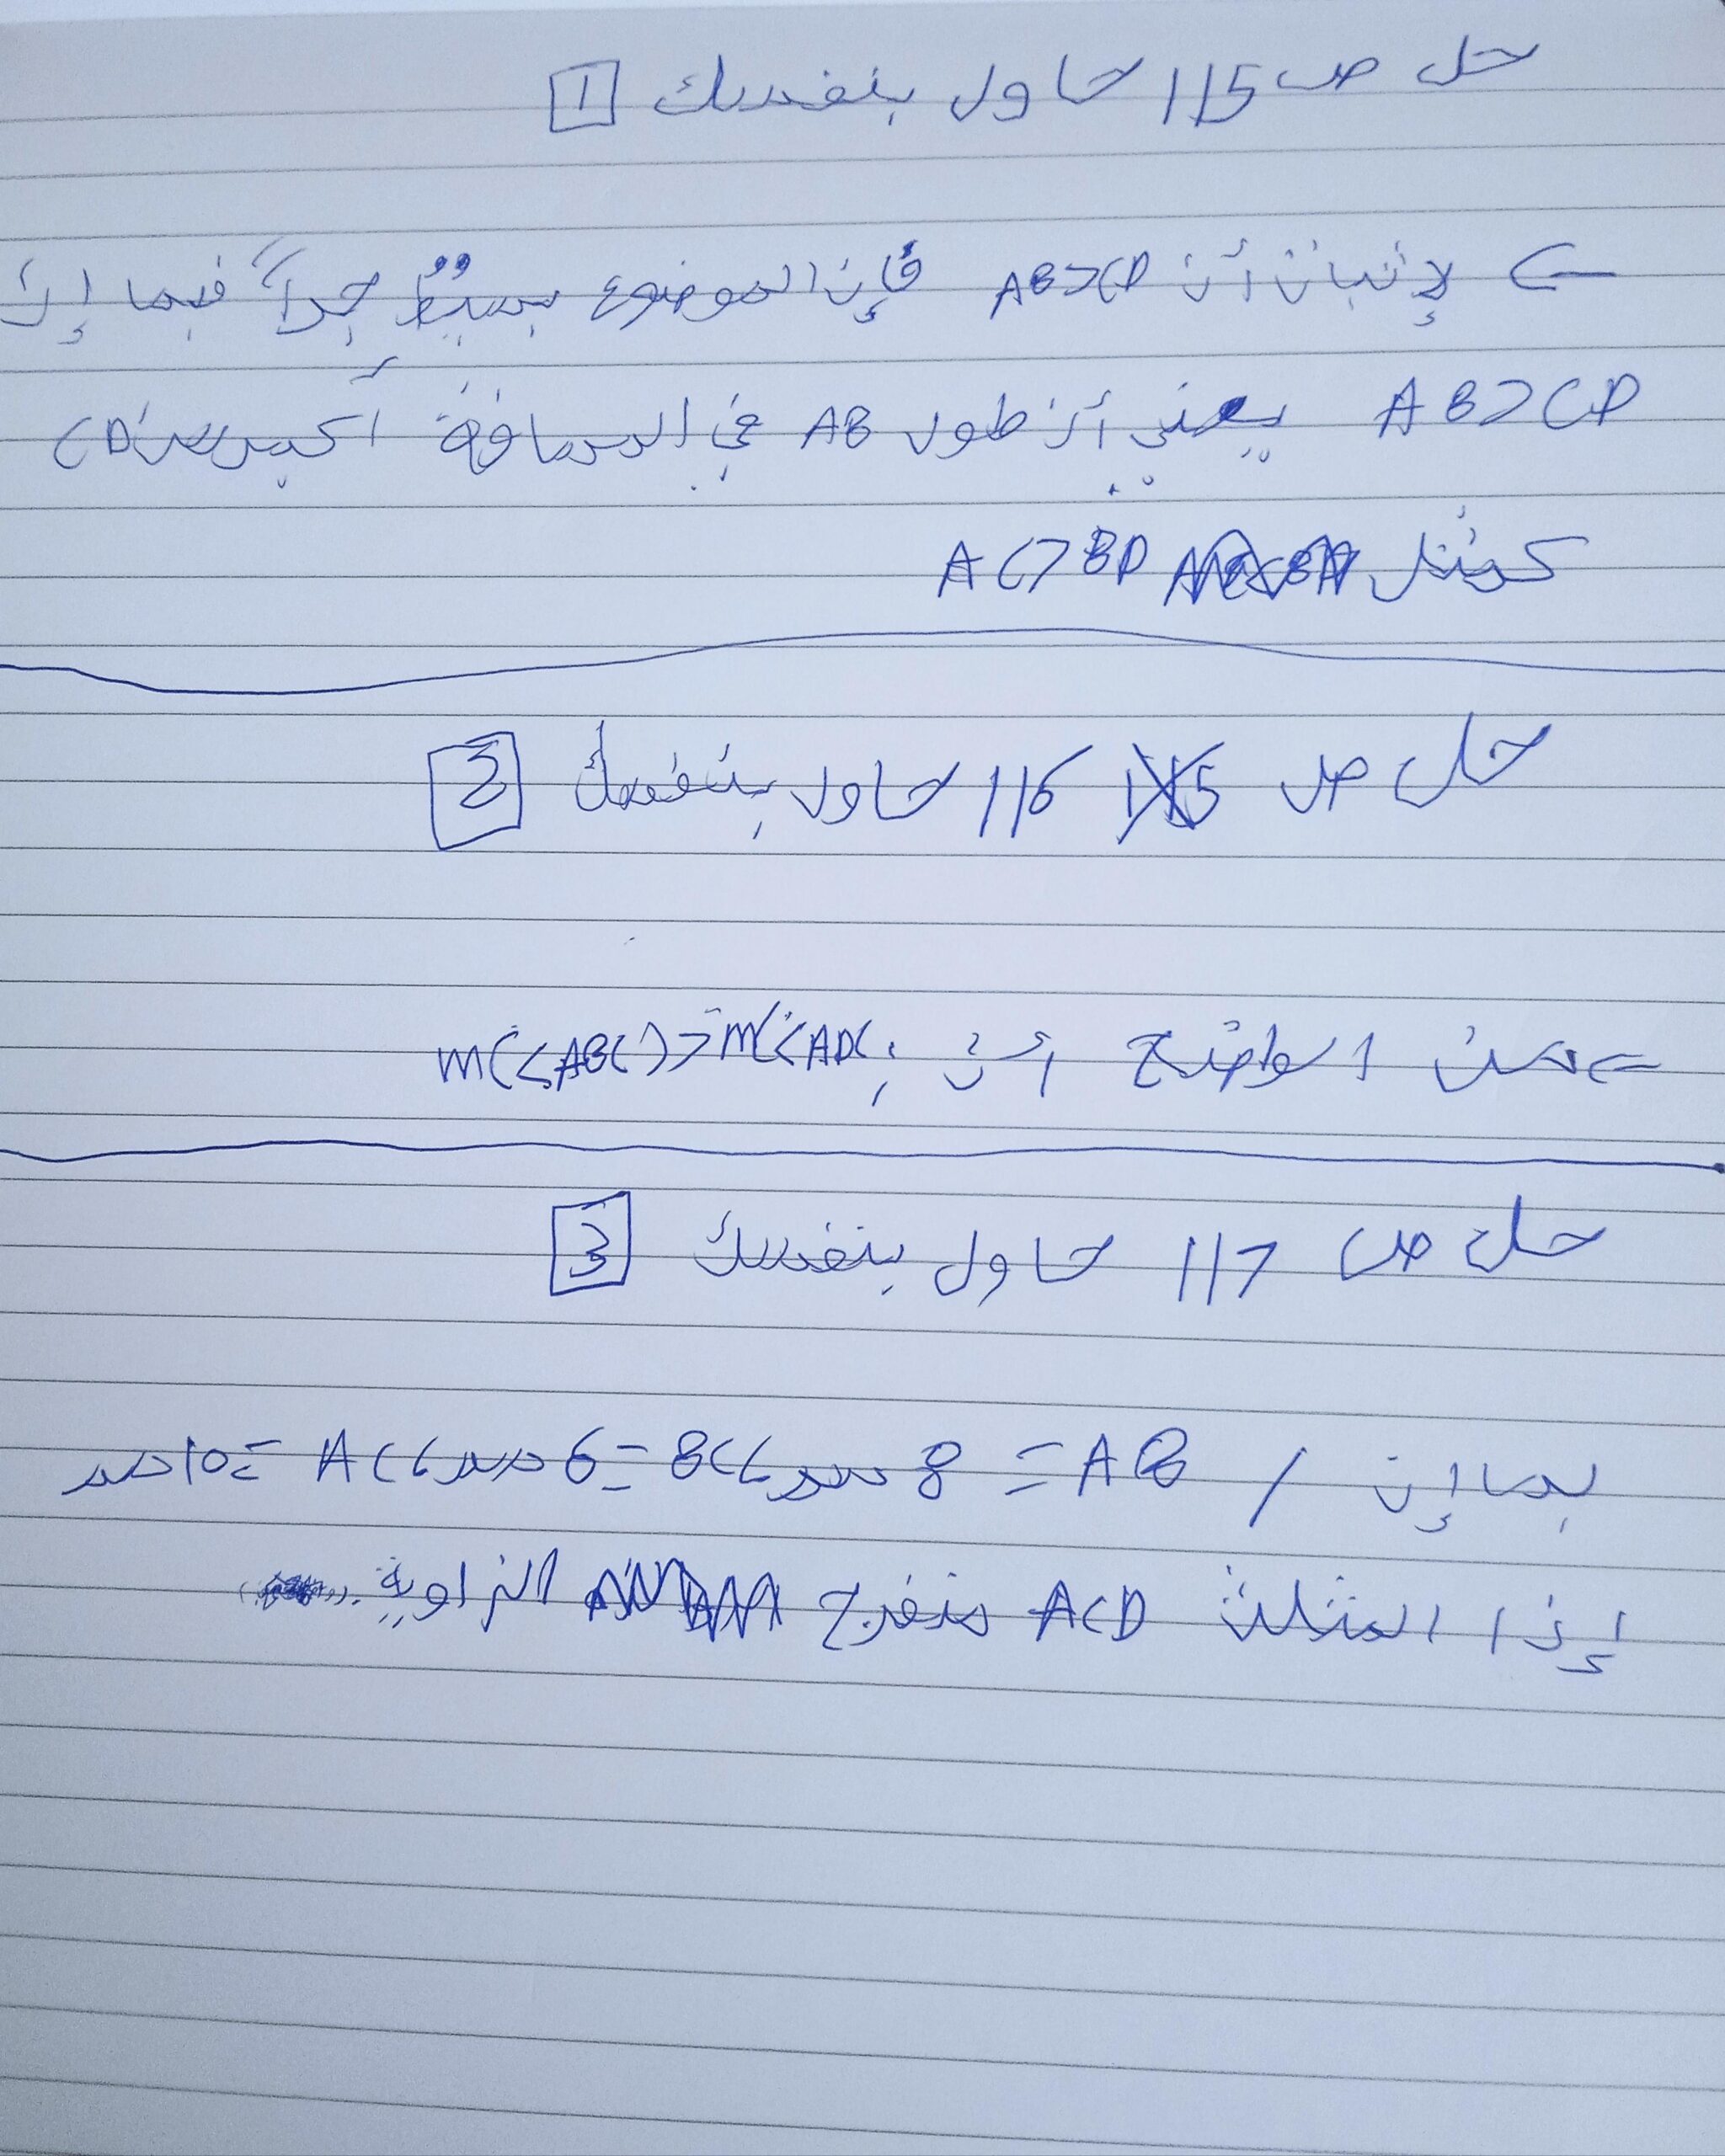 حل ص 115 حاول بنفسك 1
لإثبات أن AB>CD فإن الموضوع بسيط جداً فبما إن
AB>CD يعني أن طول AB في المسافة أكبر من CD
كمثل AC>BD
حل ص 116 حاول بنفسك 2
⇐ من الواضح أن : m(<ABC)>m(<ADC
حل ص 117 حاول بنفسك 3
بما إن / AB = 8 سم، BC = 6 سم، AC = 10 سم
إذا المثلث ACD منفرج الزاوية.